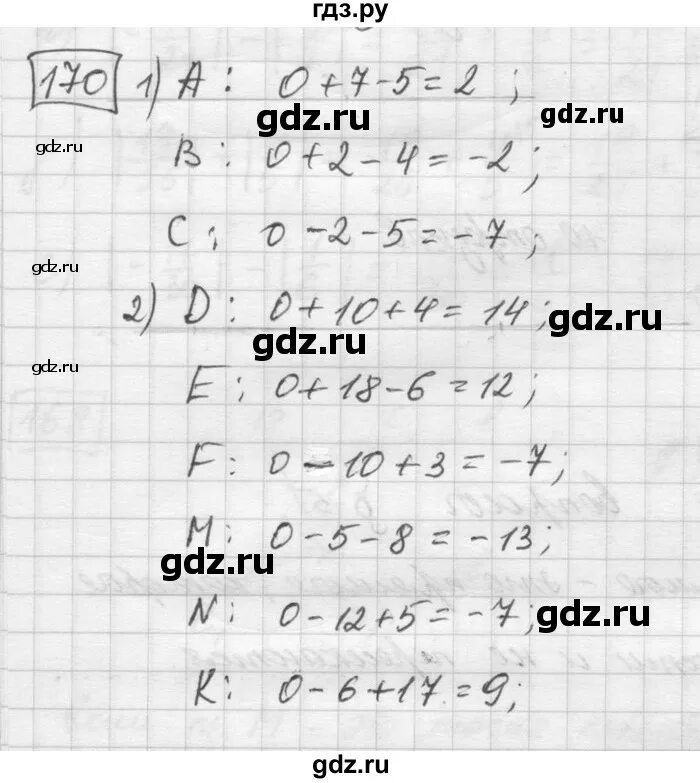 гдз.ру
170 1) A: 0+7-5=2;
gdz.ru
gdz.ru
B: 0+2-4=-2;
C: 0-2-5=-7;
gdz.ru
2) D: 0+10+4=14;
gdz.ru
gdz.ru
gdz.ru
E: 0+18-6=12;
F: 0-10+3=-7;
M: 0-5-8=-13;
gdz.ru
N: 0-12+5=-7;
gdz.ru
K: 0-6+17=9;
gdz.ru